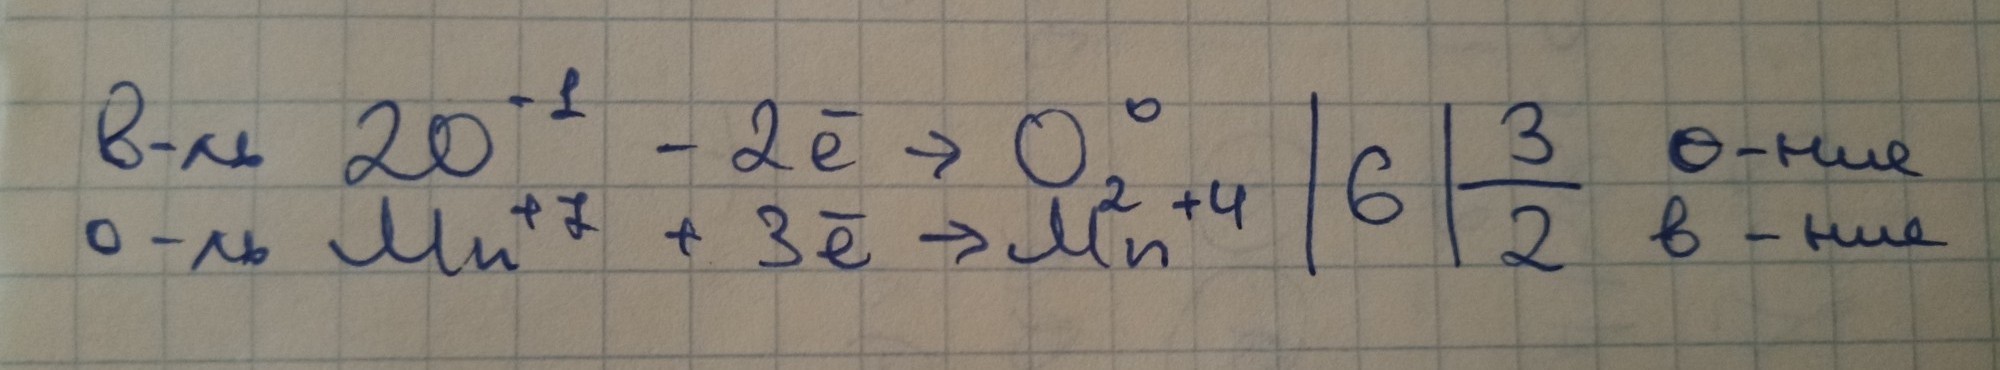 в-ль 2O⁻¹ - 2ē → O₂⁰ | 6 | 3 о-ние
о-ль Mn⁺⁷ + 3ē → Mn⁺⁴ | 6 | 2 в-ние